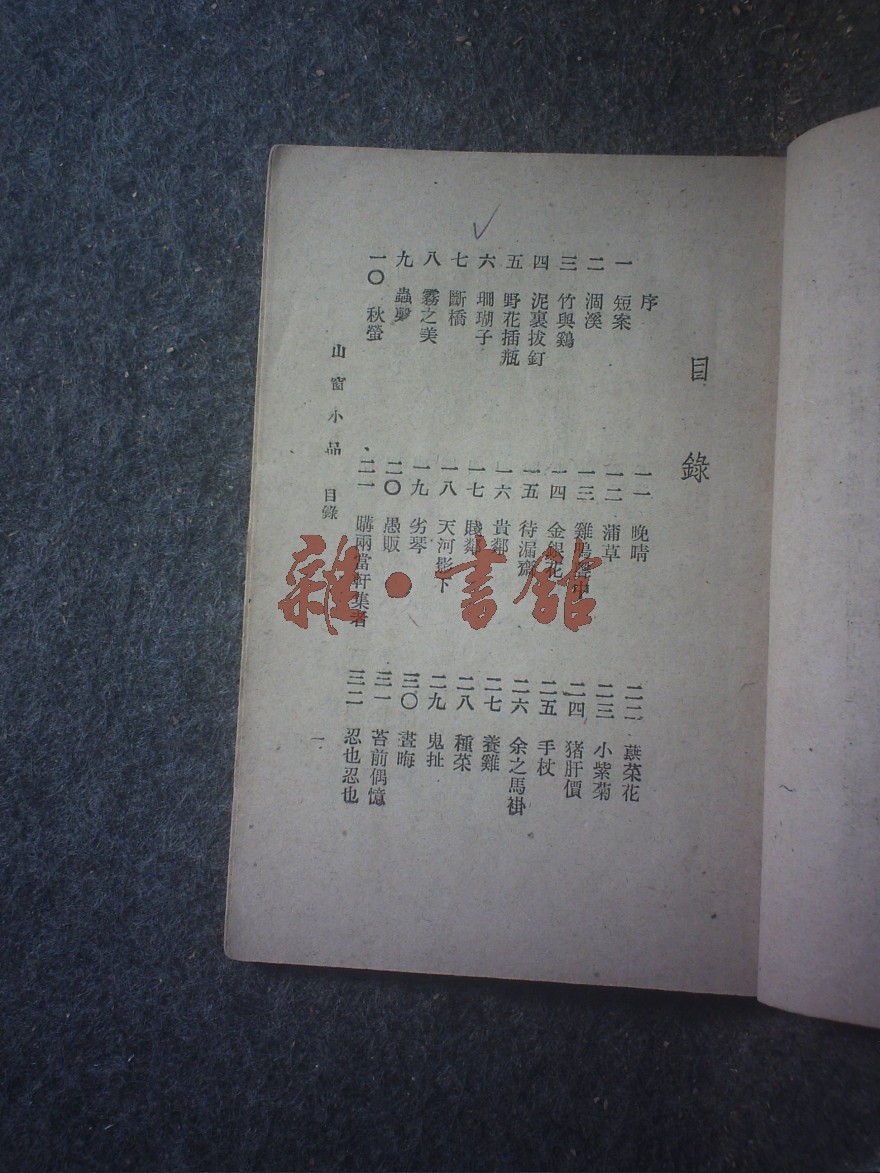 目錄
序
一 短案
二 涸溪
三 竹與鷄
四 泥裏拔釘
五 野花插瓶
六 珊瑚子
七 斷橋
八 霧之美
九 蟲聲
一〇 秋螢
一一 晚晴
一二 蒲草
一三 雞鳴聲中
一四 金銀花
一五 待漏齋
一六 貴鄰
一七 賤鄰
一八 天河影下
一九 劣琴
二〇 愚販
二一 購兩當軒集者
二二 蕻菜花
二三 小紫菊
二四 猪肝價
二五 手杖
二六 余之馬褂
二七 養雞
二八 種菜
二九 鬼扯
三〇 晝晦
三一 苔前偶憶
三二 忍也忍也
山窗小品 目錄
一
雜·書館